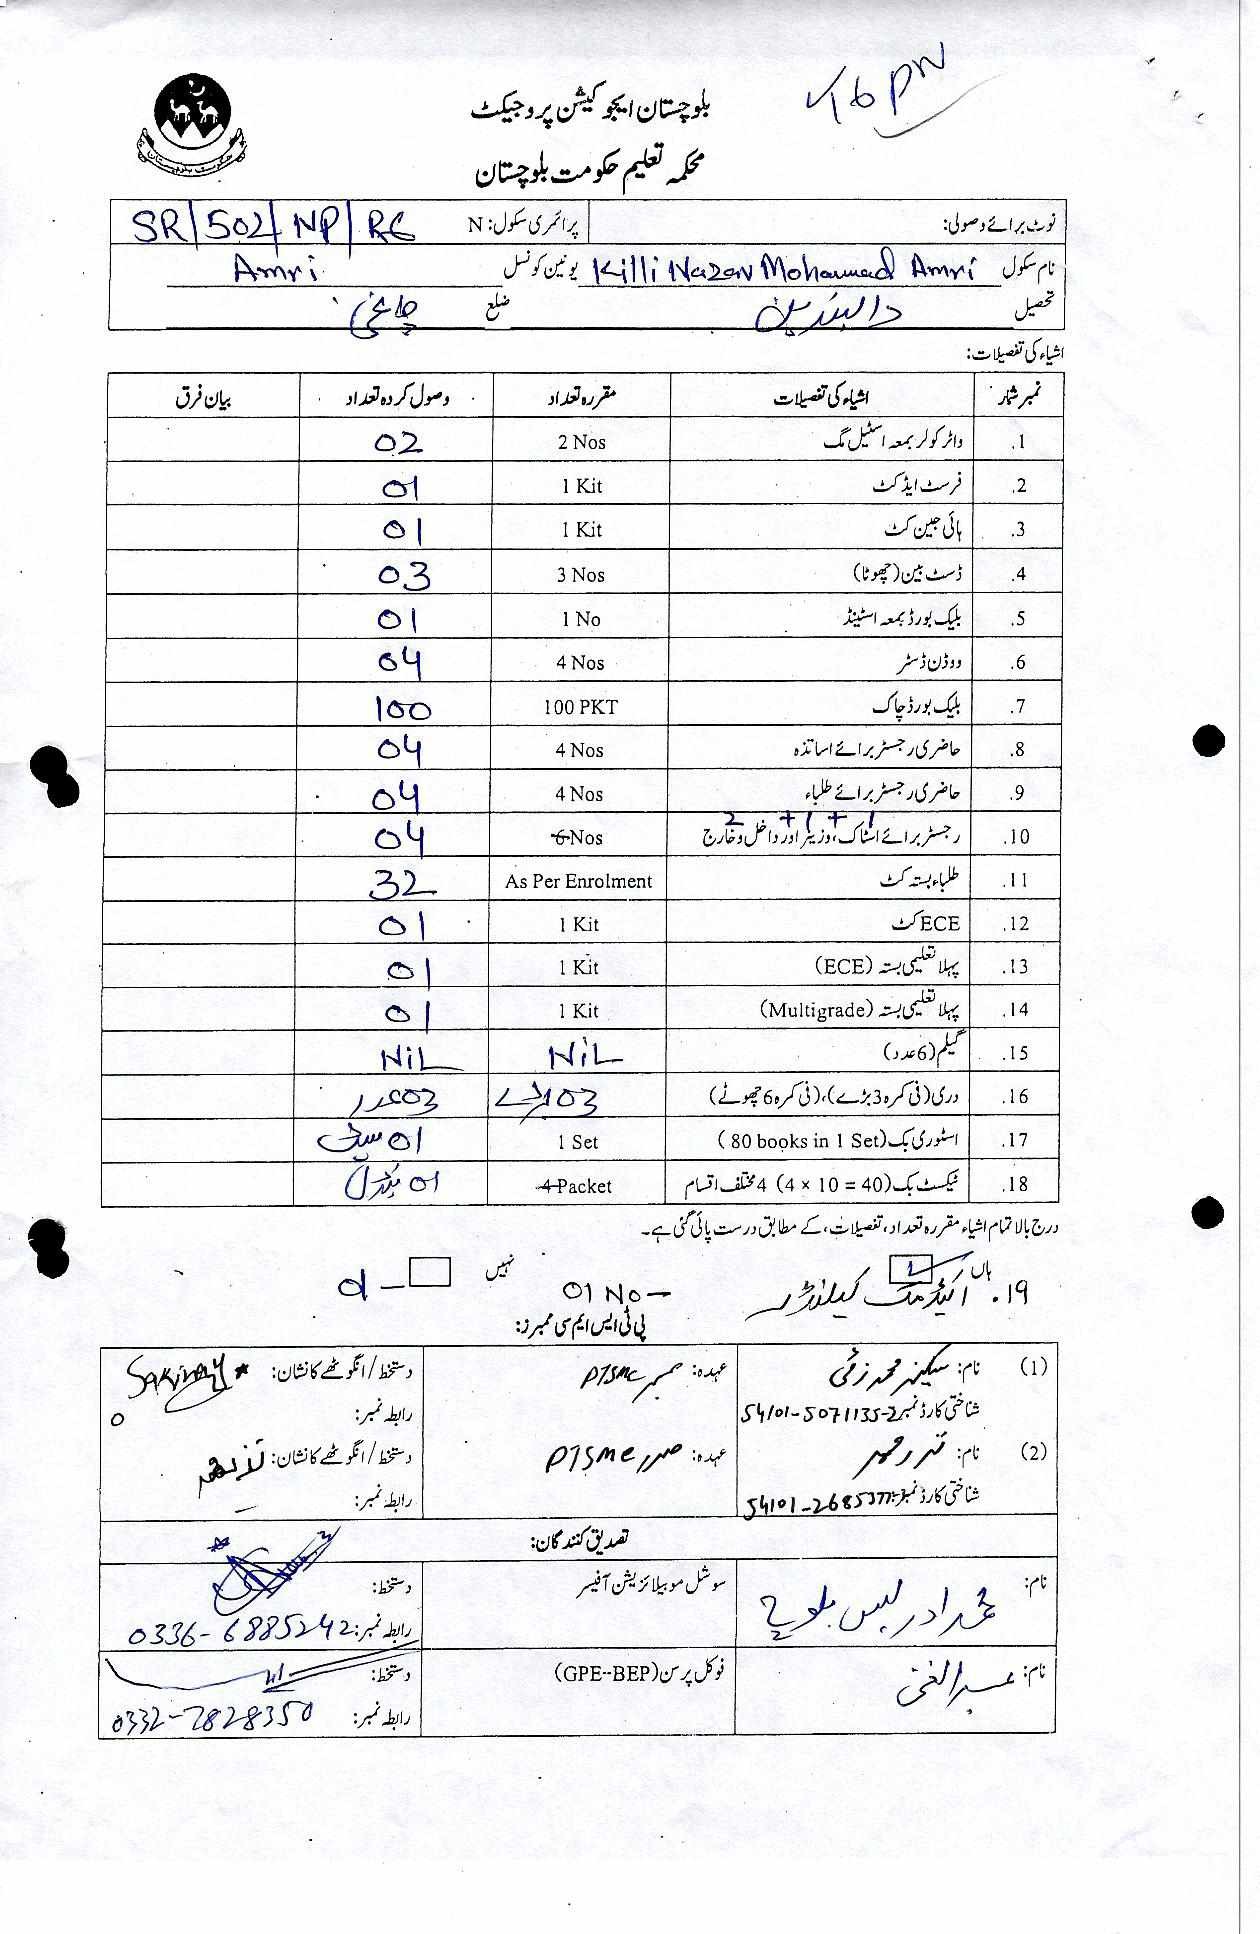 بلوچستان ایجوکیشن پروجیکٹ
محکمہ تعلیم حکومت بلوچستان
نوٹ برائے وصولی: پرائمری سکول: N SR/502/NP/RC
نام سکول Killi Nazar Mohammad Amri یونین کونسل Amri
تحصیل دالبندین ضلع چاغی
اشیاء کی تفصیلات:
نمبر شمار اشیاء کی تفصیلات مقررہ تعداد وصول کردہ تعداد بیان فرق
1. واٹر کولر بمعہ اسٹیل مگ 2 Nos 02
2. فرسٹ ایڈ کٹ 1 Kit 01
3. ہائی جین کٹ 1 Kit 01
4. ڈسٹ بین (چھوٹا) 3 Nos 03
5. بلیک بورڈ بمعہ اسٹینڈ 1 No 01
6. ووڈن ڈسٹر 4 Nos 04
7. بلیک بورڈ چاک 100 PKT 100
8. حاضری رجسٹر برائے اساتذہ 4 Nos 04
9. حاضری رجسٹر برائے طلباء 4 Nos 04
2 + 1 + 1
10. رجسٹر برائے اسٹاک، وزیٹر اور داخل و خارج 6 Nos 04
11. طلباء بستہ کٹ As Per Enrolment 32
12. ECE کٹ 1 Kit 01
13. پہلا تعلیمی بستہ (ECE) 1 Kit 01
14. پہلا تعلیمی بستہ (Multigrade) 1 Kit 01
15. گیلم (6 عدد) NiL NiL
16. دری (فی کمرہ 3 بڑے)، (فی کمرہ 6 چھوٹے) 03 بڑے 03 عدد
17. اسٹوری بک (80 books in 1 Set) 1 Set 01 سیٹ
18. ٹیکسٹ بک (4 x 10 = 40) 4 مختلف اقسام 4 Packet 01 بنڈل
درج بالا تمام اشیاء مقررہ تعداد، تفصیلات، کے مطابق درست پائی گئی ہے۔
ہاں نہیں
۱۹. اکیڈمک کیلنڈر 01 No
پی ٹی ایس ایم سی ممبرز:
(1) نام: سکینہ محمد زئی عہدہ: ممبر PTSMC دستخط/انگوٹھے کا نشان: Sakinay
شناختی کارڈ نمبر 54101-5071135-2 رابطہ نمبر:
(2) نام: نذر محمد عہدہ: صدر PTSMC دستخط/انگوٹھے کا نشان:
شناختی کارڈ نمبر رابطہ نمبر:
تصدیق کنندگان:
نام: محمد ادریس بلوچ سوشل موبیلائزیشن آفیسر دستخط:
رابطہ نمبر: 0336-6885242
نام: عبدالغنی فوکل پرسن (GPE-BEP) دستخط:
رابطہ نمبر: 0332-7828350